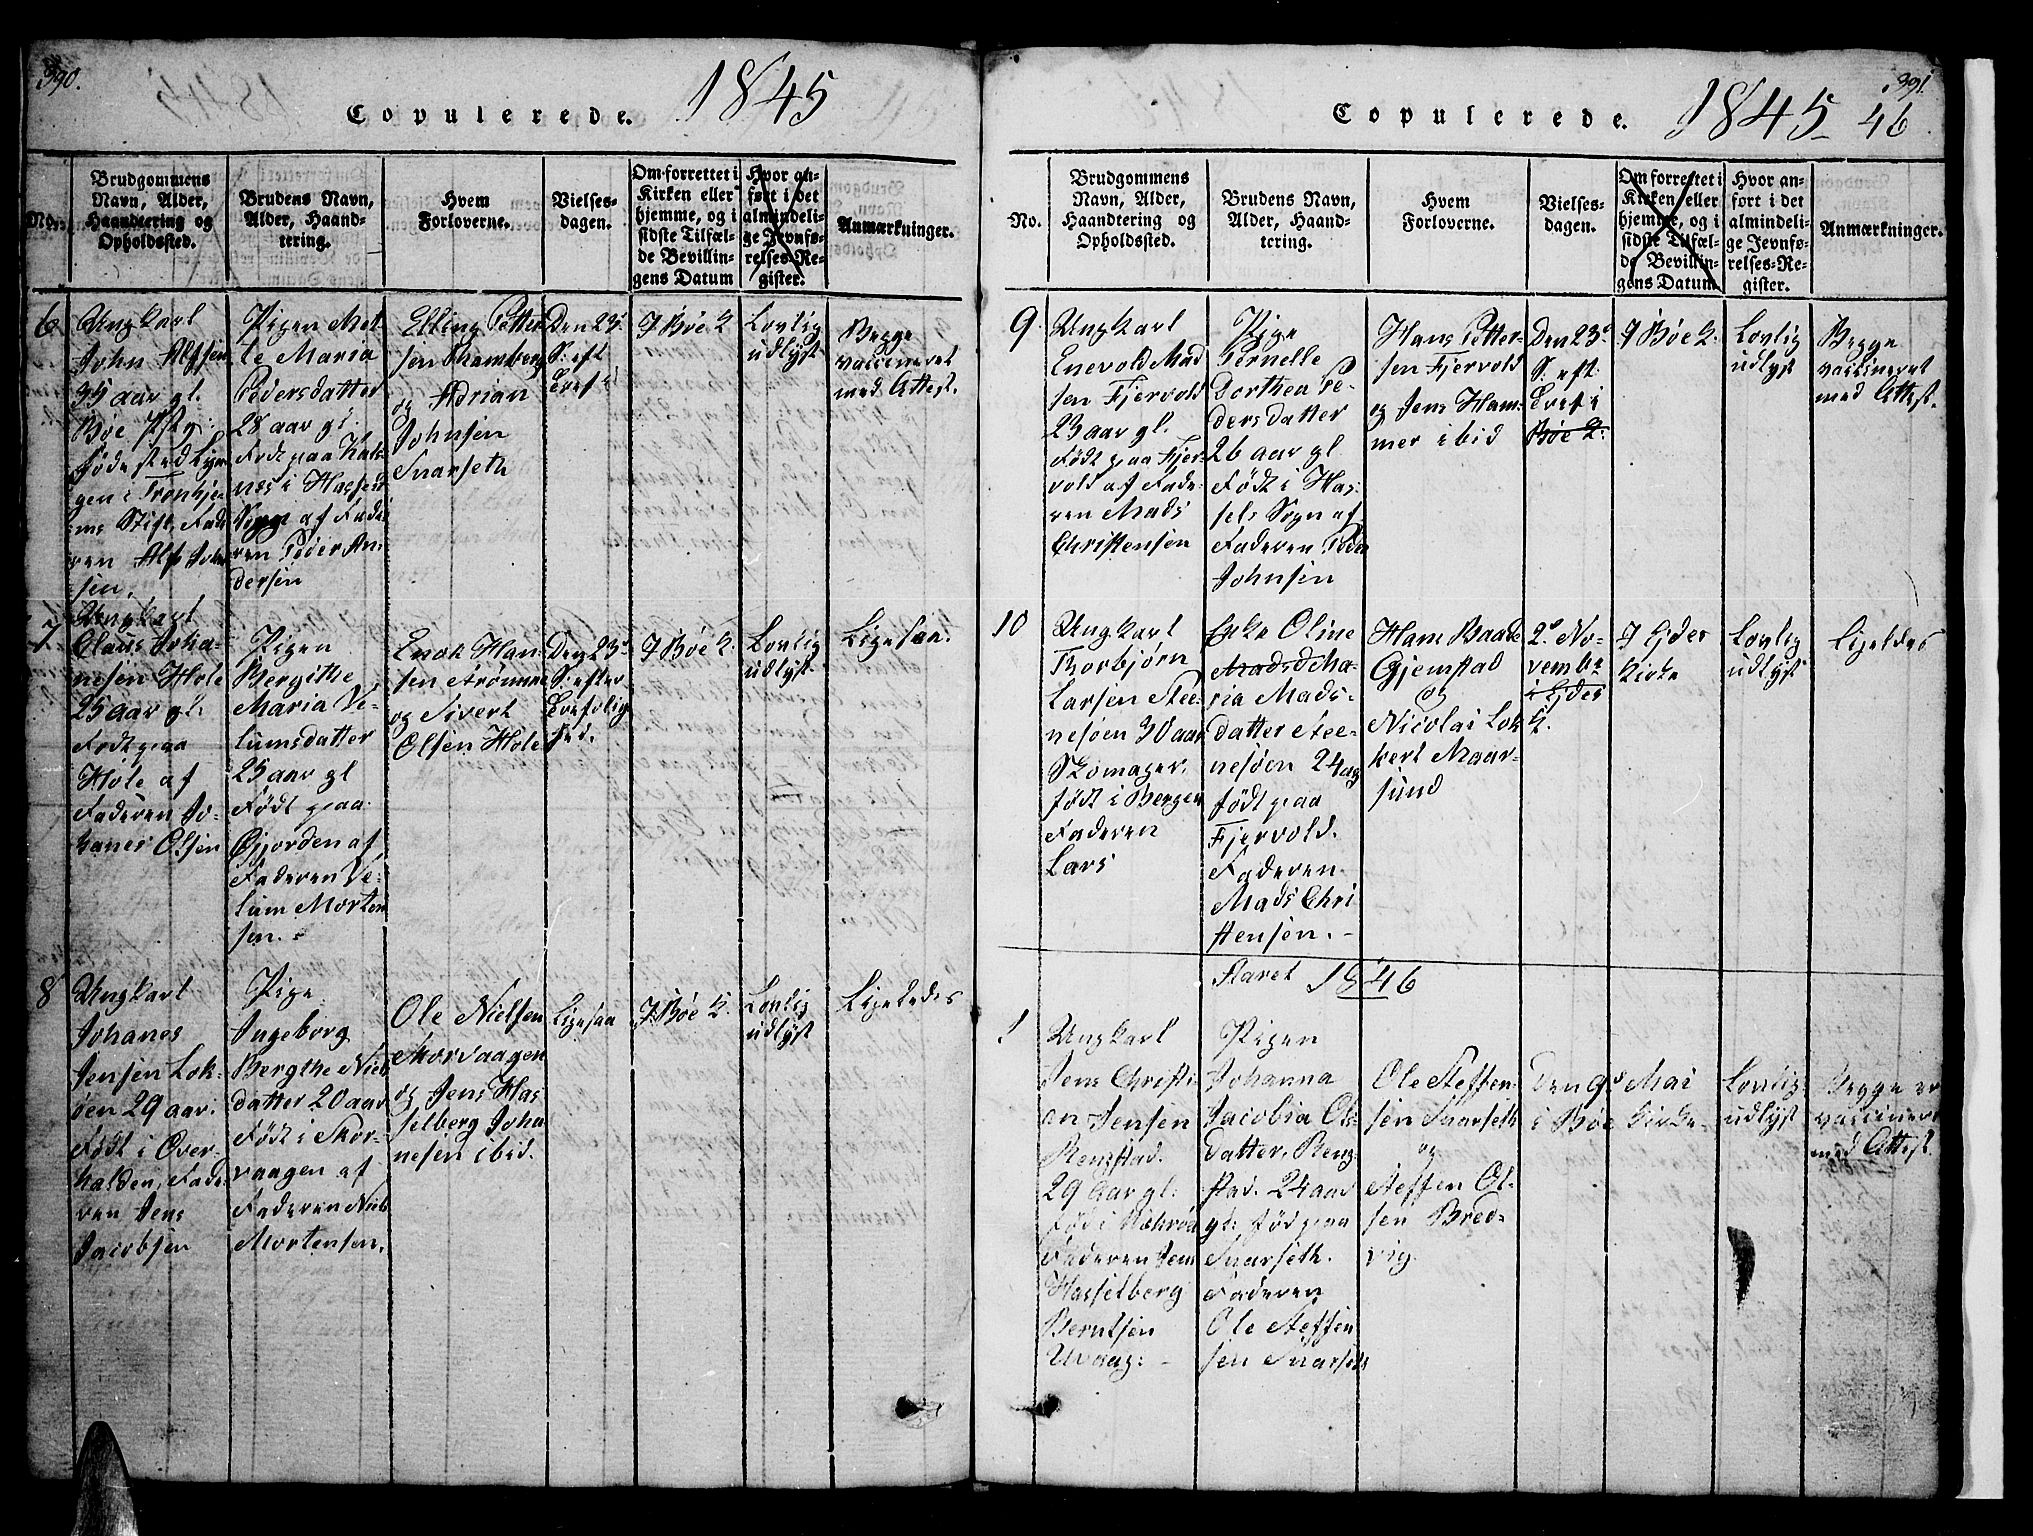 390.
Copulerede. 1845
No.
Brudgommens
Navn, Alder,
Haandtering og
Opholdssted.
Brudens Navn,
Alder, Haand-
tering.
Hvem
Forloverne.
Vielses-
dagen.
Om forrettet i
Kirken eller
hjemme, og i
sidste Tilfæl-
de Bevillin-
gens Datum
Hvor an-
ført i det
almindeli-
ge Jevnfø-
relses-Re-
gister.
Anmærkninger.
6
Ungkarl
John Alfsen
35 aar gl.
Bøe
fødested
gen i Tronhje-
ms Stift, Fade
ren Alf John
sen.
Pigen Met-
te Maria
Pedersdatter
28 aar gl.
Født paa
nes i Hassels
Sogn af Fade-
ren Peder An-
dersen
Elling Petter
sen
og Adrian
Johnsen
Snarseth
Den 23de
S: eft
Tref:
I Bøe K.
Lovlig
udlyst
Begge
vaccineret
med Attest.
7
Ungkarl
Claus Joha-
nesen Hole
25 aar gl.
Født paa
Hole af
Faderen Jo-
hanes Olsen
Pigen
Bergithe
Maria Ve-
lumsdatter
25 aar gl
Født paa
Gjorden af
Faderen Ve-
lum Morten
sen.
Enok Han-
sen Strømme
og Sivert
Olsen Hole
Den 23de
S: efter
Trefolig
hed.
I Bøe K.
Lovlig
udlyst
Ligesaa.
8
Ungkarl
Johanes
Jensen Lok-
øen 29 aar.
Født i Over-
halden, Fade-
ren Jens
Jacobsen
Pige
Ingeborg
Bergthe Niels
datter 20 aar
Født i Skor-
vaagen af
Faderen Niels
Mortensen.
Ole Nielsen
Skorvaagen
og Jens Has
selberg Joha
nesen ibid.
Ligesaa
I Bøe K.
Lovlig
udlyst
Ligeledes
391.
Copulerede. 1845 46
No.
Brudgommens
Navn, Alder,
Haandtering og
Opholdssted.
Brudens Navn,
Alder, Haand-
tering.
Hvem
Forloverne.
Vielses-
dagen.
Om forrettet i
Kirken eller
hjemme, og i
sidste Tilfæl-
de Bevillin-
gens Datum
Hvor an-
ført i det
almindeli-
ge Jevnfø-
relses-Re-
gister.
Anmærkninger.
9
Ungkarl
Enevold Mad
sen Fjervold
23 aar gl.
Født paa Fjer-
vold af Fade-
ren Mads
Christensen
Pige
Pernelle
Dorthea Pe-
dersdatter
26 aar gl
Født i Has-
sels Sogn af
Faderen Peder
Johnsen
Hans Petter-
sen Fjervold
og Jens Ham-
mer ibid
Den 23de
S: eft.
Tref: i
Bøe K:
I Bøe K.
Lovlig
udlyst
Begge
vaccineret
med Attest.
10
Ungkarl
Thorbjørn
Larsen Stee-
nesøen 30 aar
Skomager.
født i Bergen
Faderen
Lars
Enke Oline
Madsd Ma-
ria Mads-
datter Stee-
nesøen 24 ag
født paa
Fjervold.
Faderen
Mads Chri
stensen.
Hans Baade
Gjemstad
og
Nicolai Lok
kert Maar-
sund
2de No-
vembr
i Ejdes
K.
I Ejdes
Kirke
Lovlig
udlyst
Ligeledes
Aaret 1846
1
Ungkarl
Jens Christi-
an Jensen
Rengstad.
29 Aar gl.
Fød i
Faderen Jens
Hasselberg
Berntsen
Pigen
Johanna
Jacobia Ols-
datter, Reng-
stad. 24 aar
gl: fød paa
Snarseth.
Faderen
Ole Steffen
sen Snarseth
Ole Steffen-
sen Snarseth
og
Steffen Ol-
sen Bred-
vig.
Den 9de Mai
i Bøe Kirke.
Lovlig
udlyst
Begge er
vaccineret
med Attest.